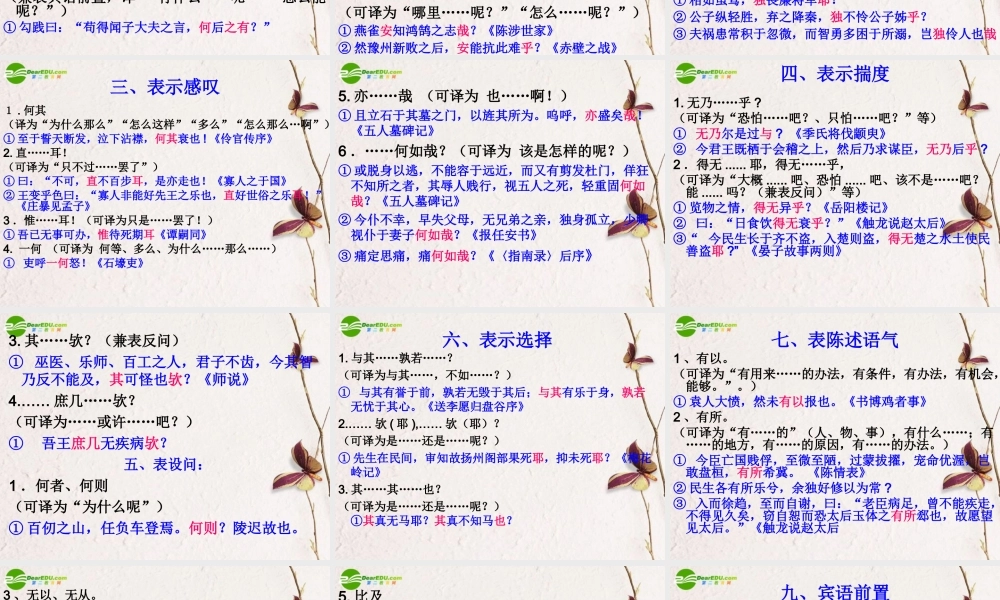 呢？”）
① 勾践曰：“苟得闻子大夫之言，何后之有？”
（可译为“哪里……呢？”“怎么……呢？”）
① 燕雀安知鸿鹄之志哉？《陈涉世家》
② 然豫州新败之后，安能抗此难乎？《赤壁之战》
② 公子纵轻胜，弃之降秦，独不怜公子姊乎？
③ 夫祸患常积于忽微，而智勇多困于所溺，岂独伶人也哉
DearEDU.com
三、表示感叹
1．何其
（译为“为什么那么”“怎么这样”“多么”“怎么那么…啊”）
① 至于誓天断发，泣下沾襟，何其衰也！《伶官传序》
2. 直……耳！
（可译为“只不过……罢了”）
① 曰：“不可，直不百步耳，是亦走也！《寡人之于国》
② 王变乎色曰：“寡人非能好先王之乐也，直好世俗之乐耳！”
《庄暴见孟子》
3．惟……耳！（可译为只是……罢了！）
① 吾已无事可办，惟待死期耳《谭嗣同》
4. 一何 （可译为 何等、多么、为什么……那么……）
① 吏呼一何怒！《石壕吏》
DearEDU.com
5. 亦……哉 （可译为 也……啊！）
① 且立石于其墓之门，以旌其所为。呜呼，亦盛矣哉！
《五人墓碑记》
6．……何如哉？（可译为 该是怎样的呢？）
① 或脱身以逃，不能容于远近，而又有剪发杜门，佯狂
不知所之者，其辱人贱行，视五人之死，轻重固何如
哉？《五人墓碑记》
② 今仆不幸，早失父母，无兄弟之亲，独身孤立，少卿
视仆于妻子何如哉？《报任安书》
③ 痛定思痛，痛何如哉？《〈指南录〉后序》
DearEDU.com
四、表示揣度
1. 无乃……乎？
（可译为“恐怕……吧？、只怕……吧？”等）
① 无乃尔是过与？ 《季氏将伐颛臾》
② 今君王既栖于会稽之上，然后乃求谋臣，无乃后乎？
2．得无 …… 耶，得无……乎，
（可译为“大概 …… 吧、恐怕 …… 吧、该不是……吧？
能 …… 吗？（兼表反问）”等）
① 览物之情，得无异乎？《岳阳楼记》
② 曰：“日食饮得无衰乎？”《触龙说赵太后》
③ “ 今民生长于齐不盗，入楚则盗，得无楚之水土使民
善盗耶？”《晏子故事两则》
DearEDU.com
3. 其……欤？（兼表反问）
① 巫医、乐师、百工之人，君子不齿，今其智
乃反不能及，其可怪也欤？《师说》
4…… 庶几……欤？
（可译为……或许……吧？）
① 吾王庶几无疾病欤？
五、表设问：
1．何者、何则
（可译为“为什么呢”）
① 百仞之山，任负车登焉。何则？陵迟故也。
DearEDU.com
六、表示选择
1. 与其……孰若……？
（可译为与其……，不如……？）
① 与其有誉于前，孰若无毁于其后；与其有乐于身，孰若
无忧于其心。《送李愿归盘谷序》
2…… 欤 ( 耶 ),…… 欤（耶）？
（可译为是……还是……呢？）
① 先生在民间，审知故扬州阁部果死耶，抑未死耶？《梅花
岭记》
3. 其……其……也？
（可译为是……还是……呢？）
①其真无马耶？其真不知马也？
DearEDU.com
七、表陈述语气
1、有以。
（可译为“有用来……的办法，有条件，有办法，有机会，
能够。”。）
① 袁人大愤，然未有以报也。《书博鸡者事》
2、有所。
（可译为“有……的”（人、物、事），有什么……；有
……的地方，有……的原因，有……的办法。）
① 今臣亡国贱俘，至微至陋，过蒙拔擢，宠命优渥，岂
敢盘桓，有所希冀。 《陈情表》
② 民生各有所乐兮，余独好修以为常？
③ 入而徐趋，至而自谢，曰：“老臣病足，曾不能疾走，
不得见久矣，窃自恕而恐太后玉体之有所郄也，故愿望
见太后。”《触龙说赵太后
DearEDU.com
3、无以、无从。
DearEDU.com
5. 比及
DearEDU.com
九、宾语前置